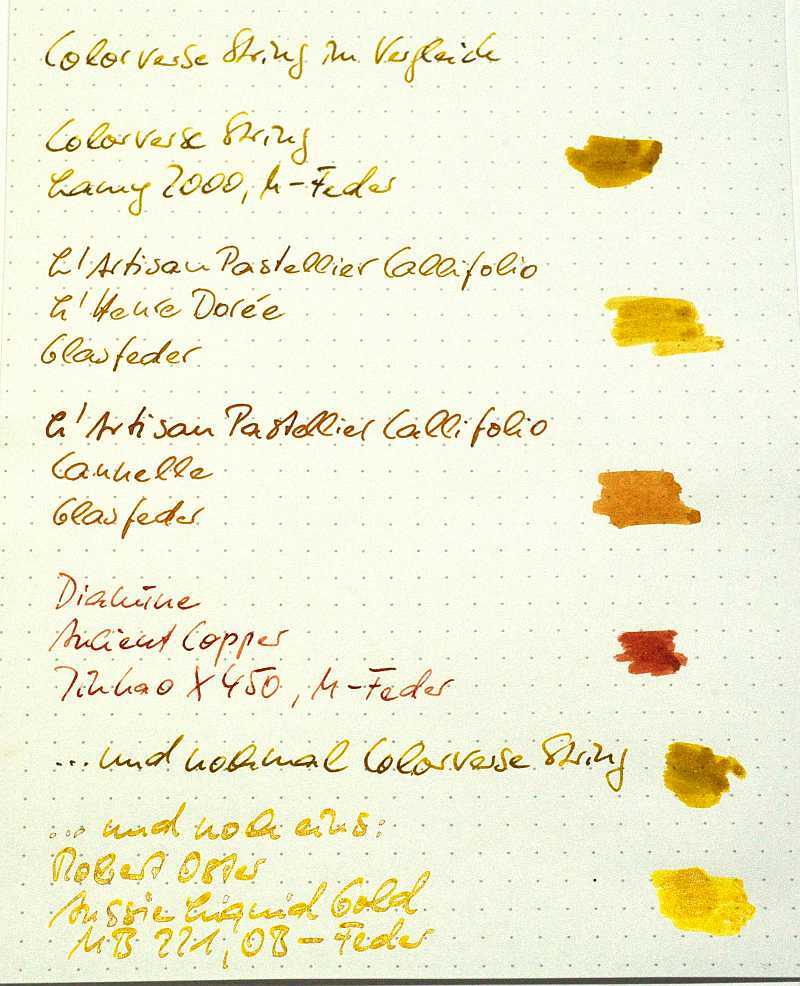 Colorverse String im Vergleich
Colorverse String
Lamy 2000, M-Feder
L'Artisan Pastellier Callifolio
L'Heure Dorée
Glasfeder
L'Artisan Pastellier Callifolio
Cannelle
Glasfeder
Diamine
Ancient Copper
Jinhao X450, M-Feder
... und nochmal Colorverse String
... und noch eins:
Robert Oster
Aussie Liquid Gold
MB 221, OB-Feder